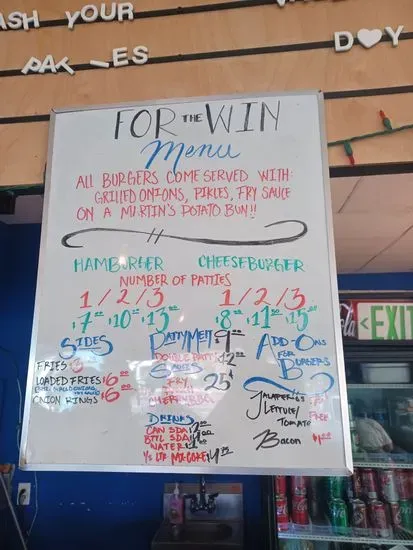 ASH YOUR
PAT-ES
D♥Y
FOR THE WIN
Menu
ALL BURGERS COME SERVED WITH:
GRILLED ONIONS, PIKLES, FRY SAUCE
ON A MARTIN'S POTATO BUN!!
HAMBURGER CHEESEBURGER
NUMBER OF PATTIES
1/2/3 1/2/3
$7.00 $10.00 $13.00 $8.00 $11.50 $15.00
SIDES PATTY MELT $9
DOUBLE PATTY $12
ADD-ONS
FOR
BURGERS
FRIES
LOADED FRIES $6.00
ONION RINGS $6.00
SAUCES
FRY
25¢
JALAPEÑOS
LETTUCE/
TOMATO
FREE
BACON
DRINKS
CAN SDA
BTTL SDA
WATER
½ LTR MX COKE $4
EXIT